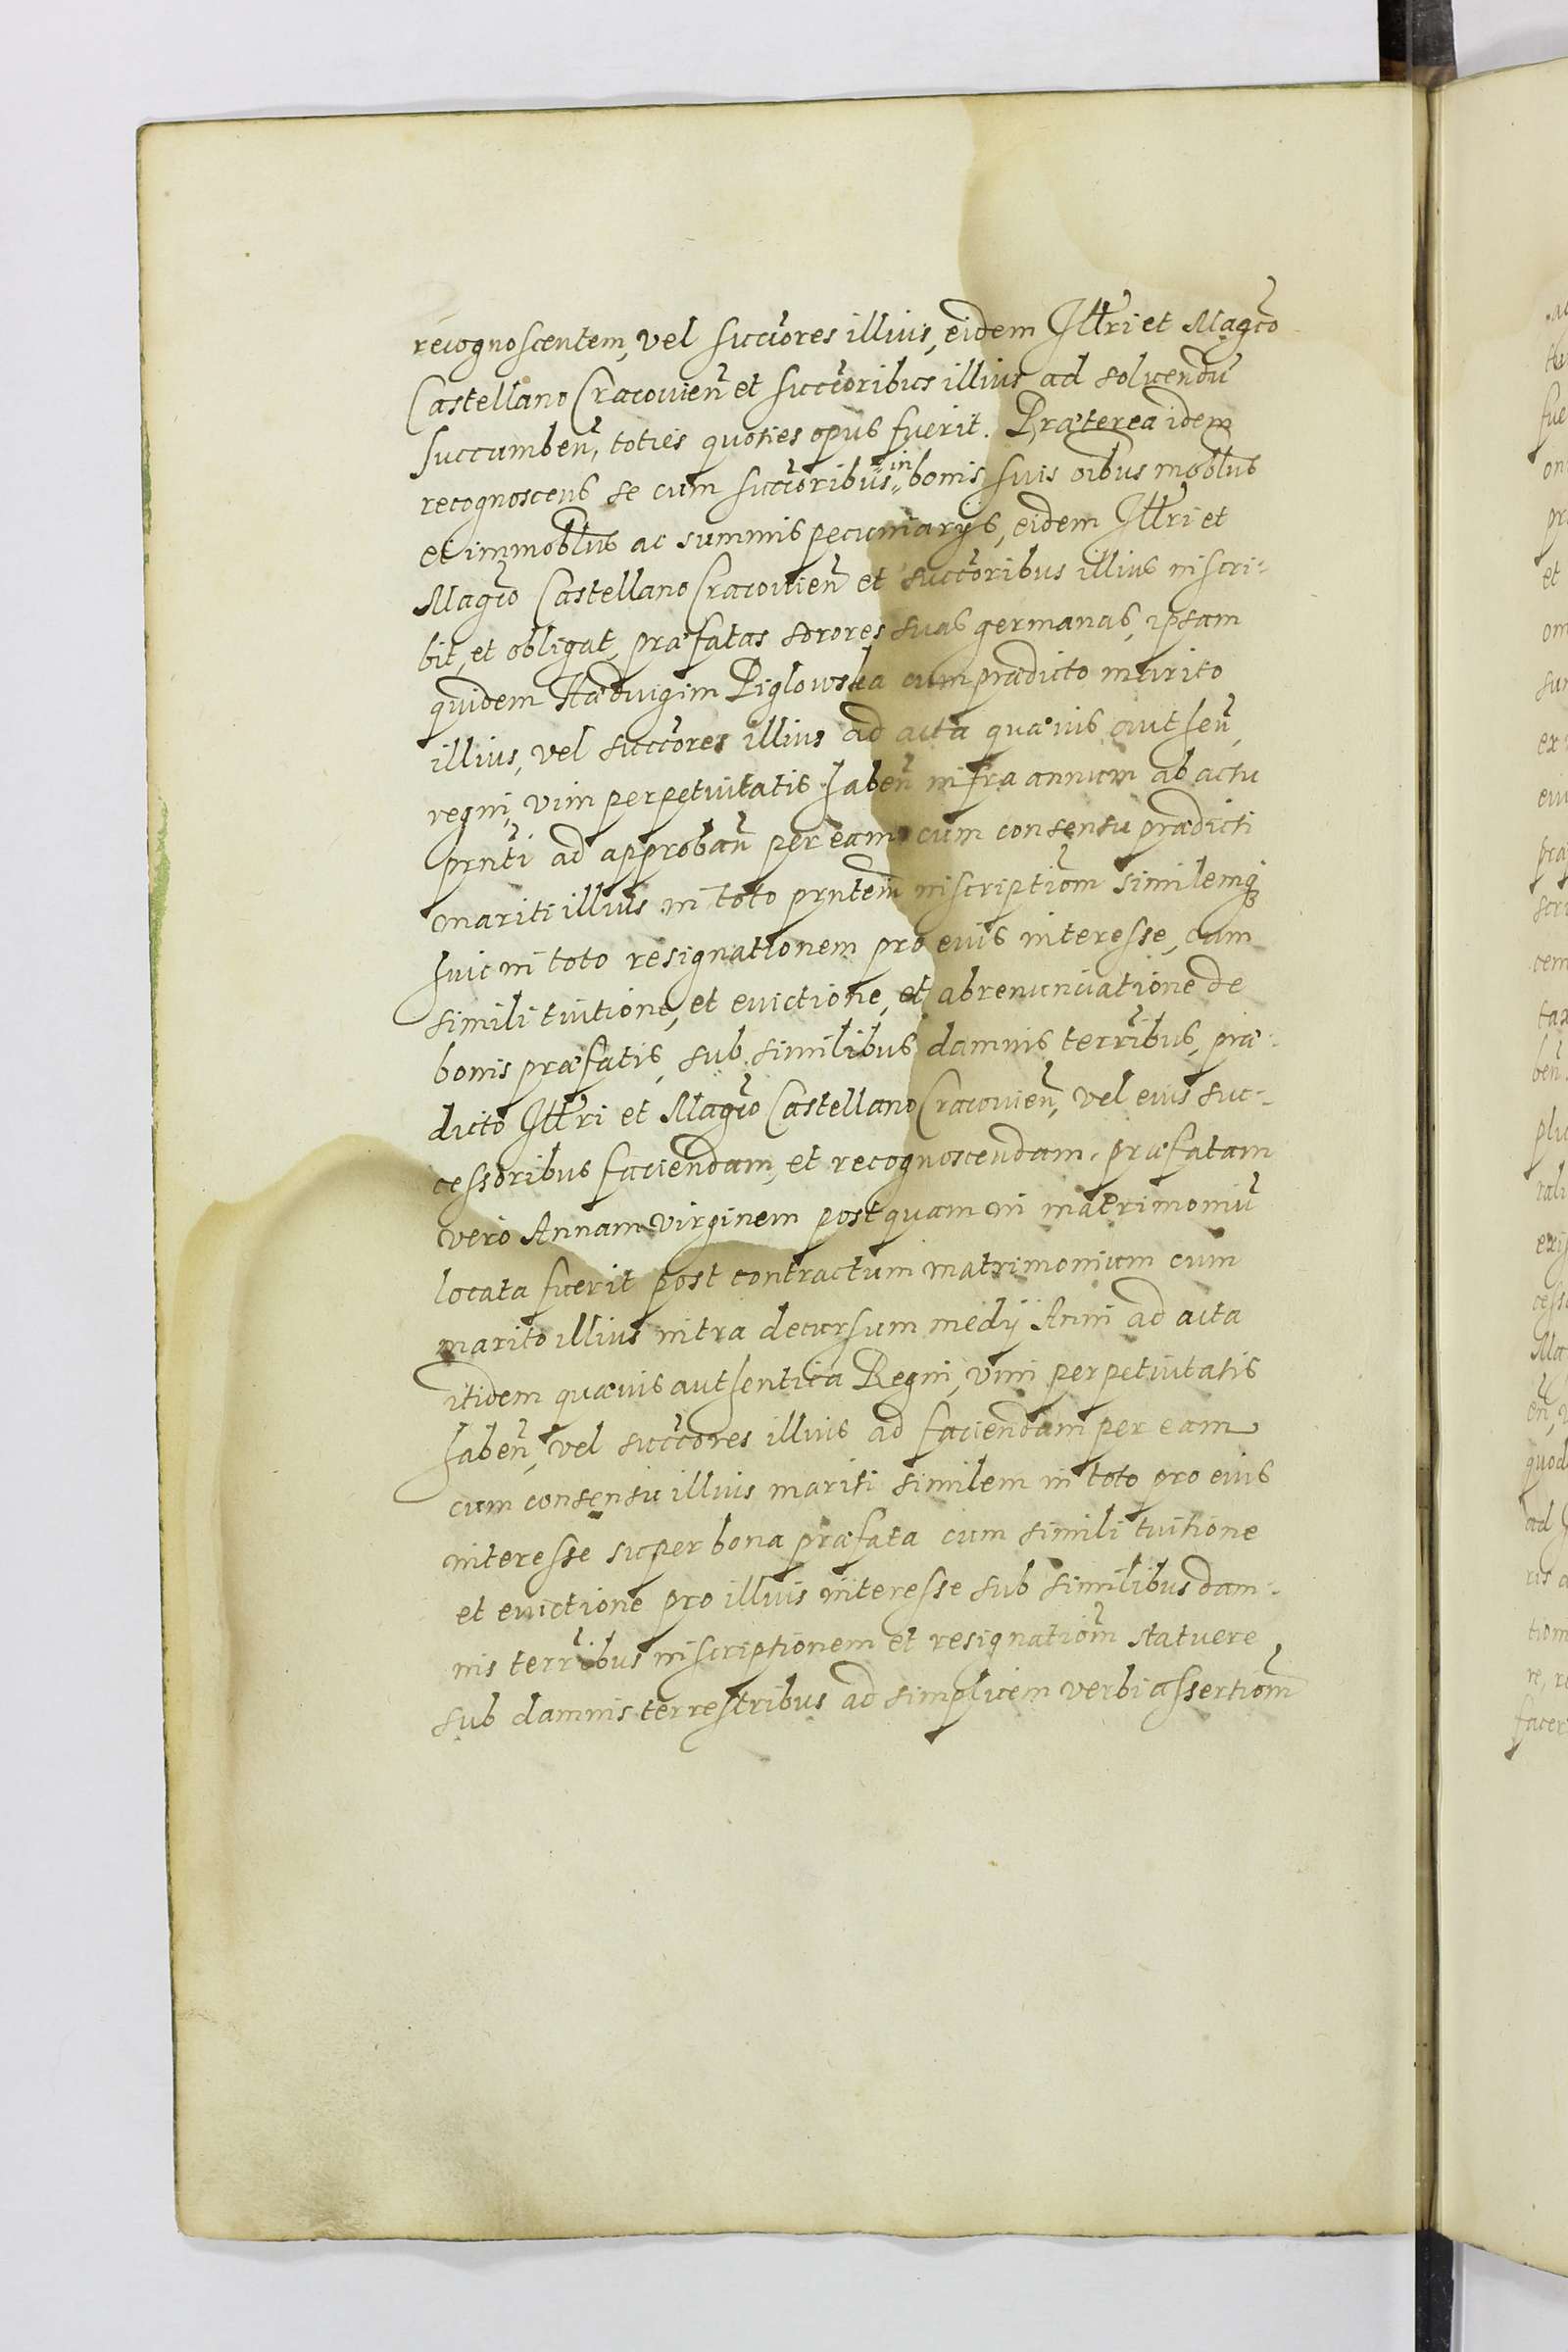 recognoscentem, vel succores illius, eidem Illri et Magco
Castellano Cracovien et succoribus illius ad solvendu
succumben, toties quoties opus fuerit. Præterea idem
recognoscens se cum succoribus in bonis suis oibus moblbus
et immoblbus ac summis pecuniarÿs, eidem Illri et
Magco Castellano Cracovien et succoribus illius inscri-
bit, et obligat, præfatas sorores suas germanas, ipsam
quidem Hædvigim Piglowska cum prædicto marito
illius, vel succores illius ad acta quævis authen,
regni, vim perpetuitatis haben infra annum ab actu
prnti ad approban per eam cum consensu prædicti
mariti illius in toto prntem inscriptiom similemq
huic in toto resignationem pro eius interesse, cum
simili tuitione, et evictione, et abrenunciatione de
bonis præfatis, sub similibus damnis terribus, præ-
dicto Illri et Magco Castellano Cracovien, vel eius suc-
cessoribus faciendam, et recognoscendam. præfatam
vero Annam virginem postquam in matrimoniu
locata fuerit post contractum matrimonium cum
marito illius intra decursum medÿ Anni ad acta
itidem quævis authentica Regni, vim perpetuitatis
haben, vel succores illius ad faciendam per eam
cum consensu illius mariti similem in toto pro eius
interesse super bona præfata cum simili tuitione
et evictione pro illius interesse sub similibus dam-
nis terribus inscriptionem et resignatiom statuere
sub damnis terrestribus ad simplicem verbi assertiom